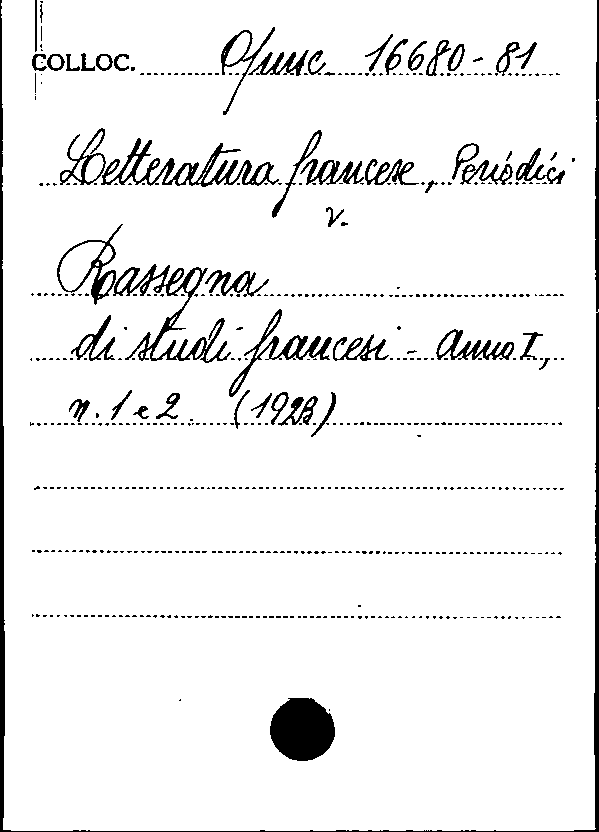 COLLOC. Opusc. 16680-81
Letteratura francese, Periodici
v.
Rassegna
di studi francesi - Anno I,
n. 1 e 2. (1923)